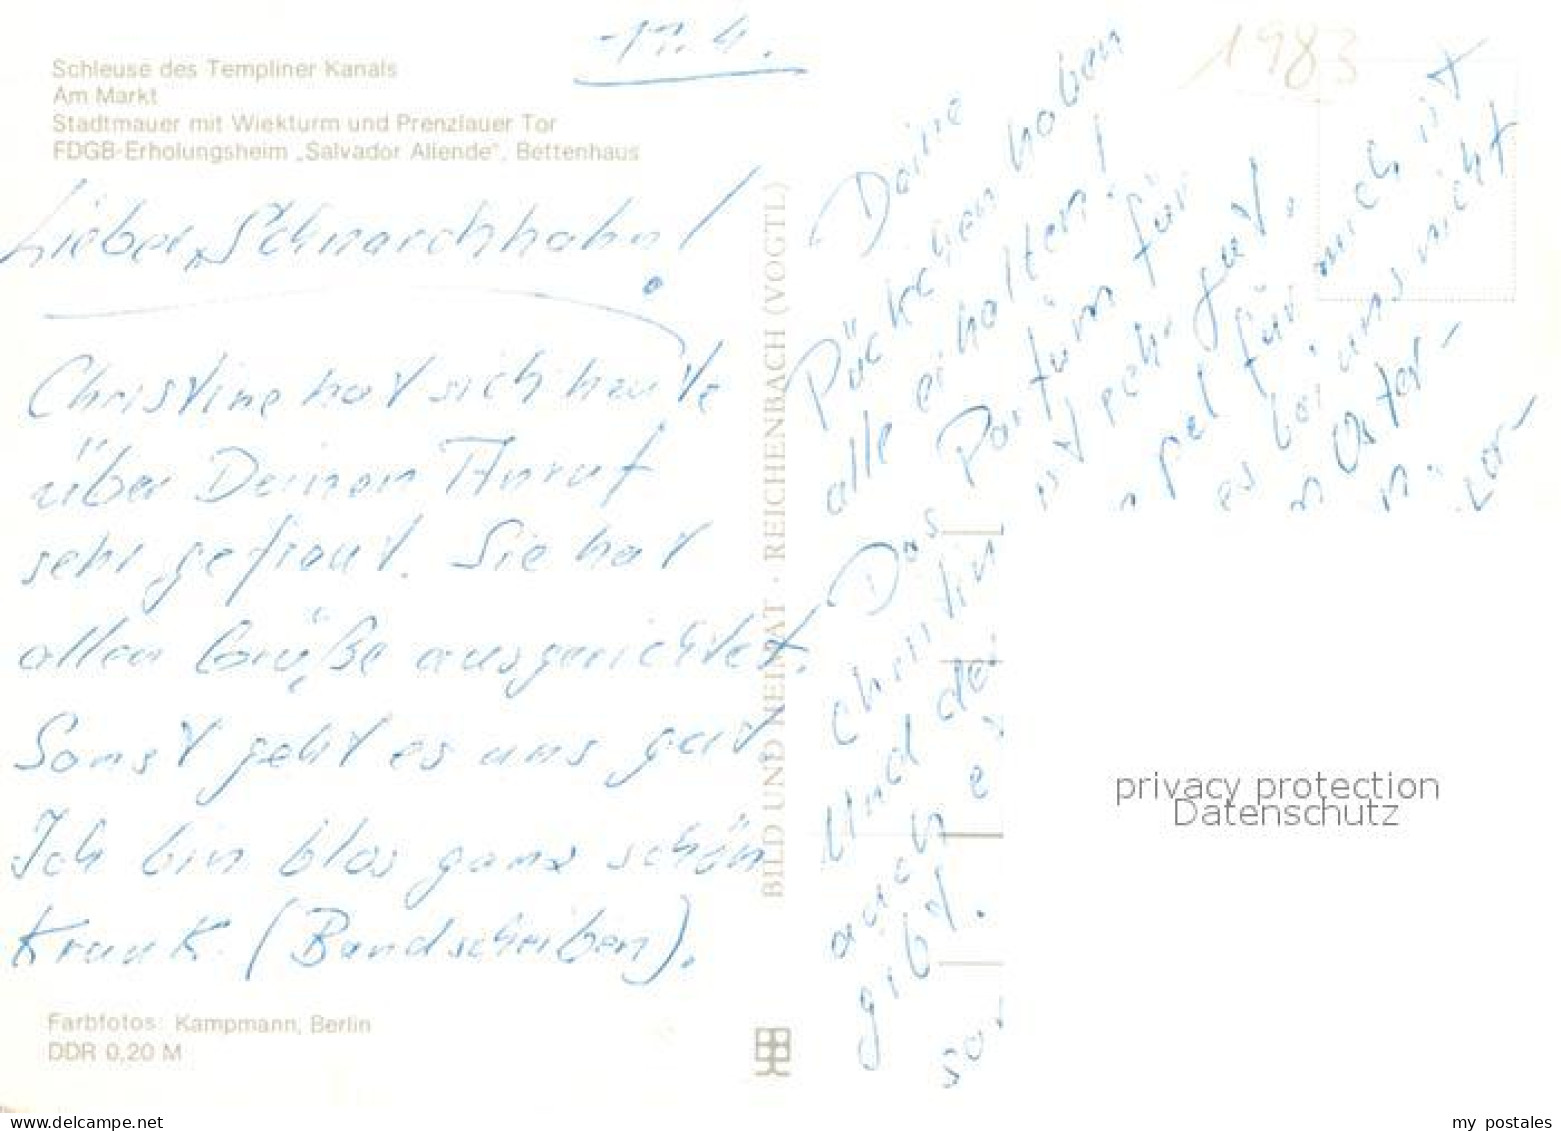 -11.4.
Schleuse des Templiner Kanals
Am Markt
Stadtmauer mit Wiekturm und Prenzlauer Tor
FDGB-Erholungsheim „Salvador Allende", Bettenhaus
Lieber Schnarchhahn!
Christine hat sich heute
über Deinen Anruf
sehr gefreut. Sie hat
allen Grüße ausgerichtet.
Sonst geht es uns gut.
Ich bin blos ganz schön
Krank (Bandscheiben).
Farbfotos: Kampmann, Berlin
DDR 0,20 M
BILD UND HEIMAT · REICHENBACH (VOGTL)
1983
Deine
Päckchen haben
alle erhalten!
Das Parfüm für
Christin ist sehr gut.
Und für mich ist
auch es bei uns nicht
gibt. Oster-
privacy protection
Datenschutz
my postales
www.delcampe.net